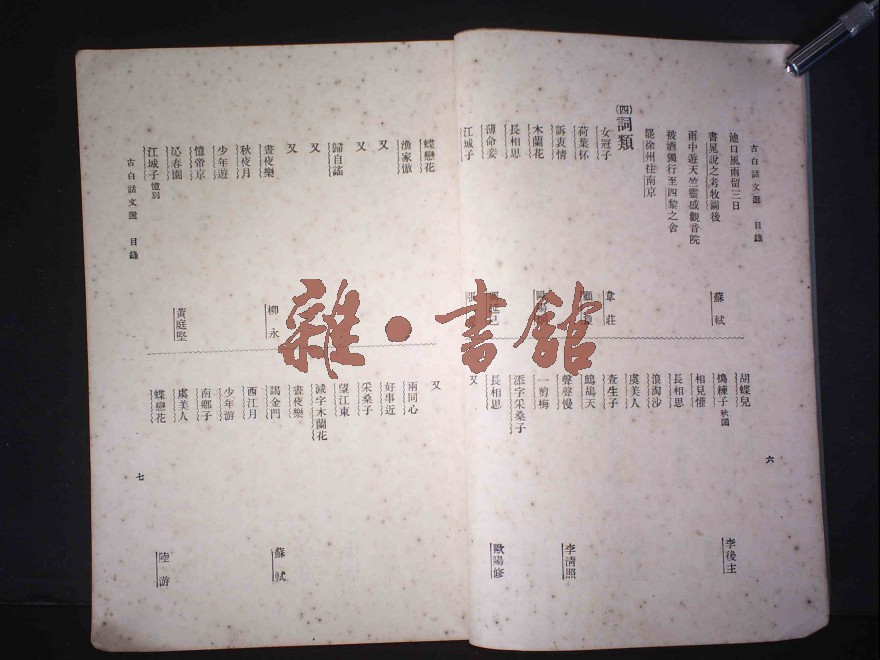 古白話文選　目錄
池口風雨留三日
書晁說之考牧圖後
雨中遊天竺靈感觀音院
被酒獨行至四黎之舍
罷徐州往南京
蘇軾
(四)詞類
女冠子
韋莊
荷葉杯
訴衷情
木蘭花
長相思
薄命妾
江城子
胡蝶兒
搗練子 秋閨
李後主
相見懽
長相思
浪淘沙
虞美人
查生子
鷓鴣天
聲聲慢
李清照
一剪梅
添字采桑子
長相思
歐陽修
又
六
蝶戀花
漁家傲
又
又
歸自謠
又
又
晝夜樂
柳永
秋夜月
少年遊
憶帝京
沁春園
黃庭堅
江城子 憶別
又
兩同心
好事近
采桑子
望江東
減字木蘭花
晝夜樂
謁金門
蘇軾
西江月
少年游
南鄉子
虞美人
蝶戀花
陸游
古白話文選　目錄
七
雜·書館